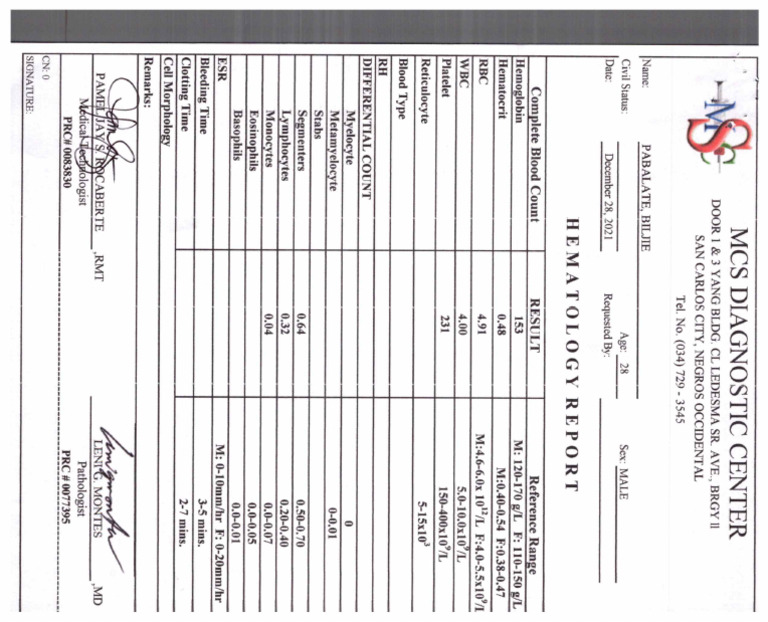 MCS
MCS DIAGNOSTIC CENTER
DOOR 1 & 3 YANG BLDG. CL LEDESMA SR. AVE., BRGY II
SAN CARLOS CITY, NEGROS OCCIDENTAL
Tel. No. (034) 729 - 3545
Name: PABALATE, BILJIE
Civil Status: Age: 28 Sex: MALE
Date: December 28, 2021 Requested By:
HEMATOLOGY REPORT
Complete Blood Count RESULT Reference Range
Hemoglobin 153 M: 120-170 g/L F: 110-150 g/L
Hematocrit 0.48 M:0.40-0.54 F:0.38-0.47
RBC 4.91 M:4.6-6.0x 10¹²/L F:4.0-5.5x10⁹/l
WBC 4.00 5.0-10.0x10⁹/L
Platelet 231 150-400x10⁹/L
Reticulocyte 5-15x10³
Blood Type
RH
DIFFERENTIAL COUNT
Myelocyte 0
Metamyelocyte 0-0.01
Stabs
Segmenters 0.64 0.50-0.70
Lymphocytes 0.32 0.20-0.40
Monocytes 0.04 0.0-0.07
Eosinophils 0.0-0.05
Basophils 0.0-0.01
ESR M: 0-10mm/hr F: 0-20mm/hr
Bleeding Time 3-5 mins.
Clotting Time 2-7 mins.
Cell Morphology
Remarks:
PAMEL JAY S. ROCABERTE ,RMT LENI G. MONTES ,MD
Medical Technologist Pathologist
PRC# 0083830 PRC # 0077395
CN: 0
SIGNATURE: